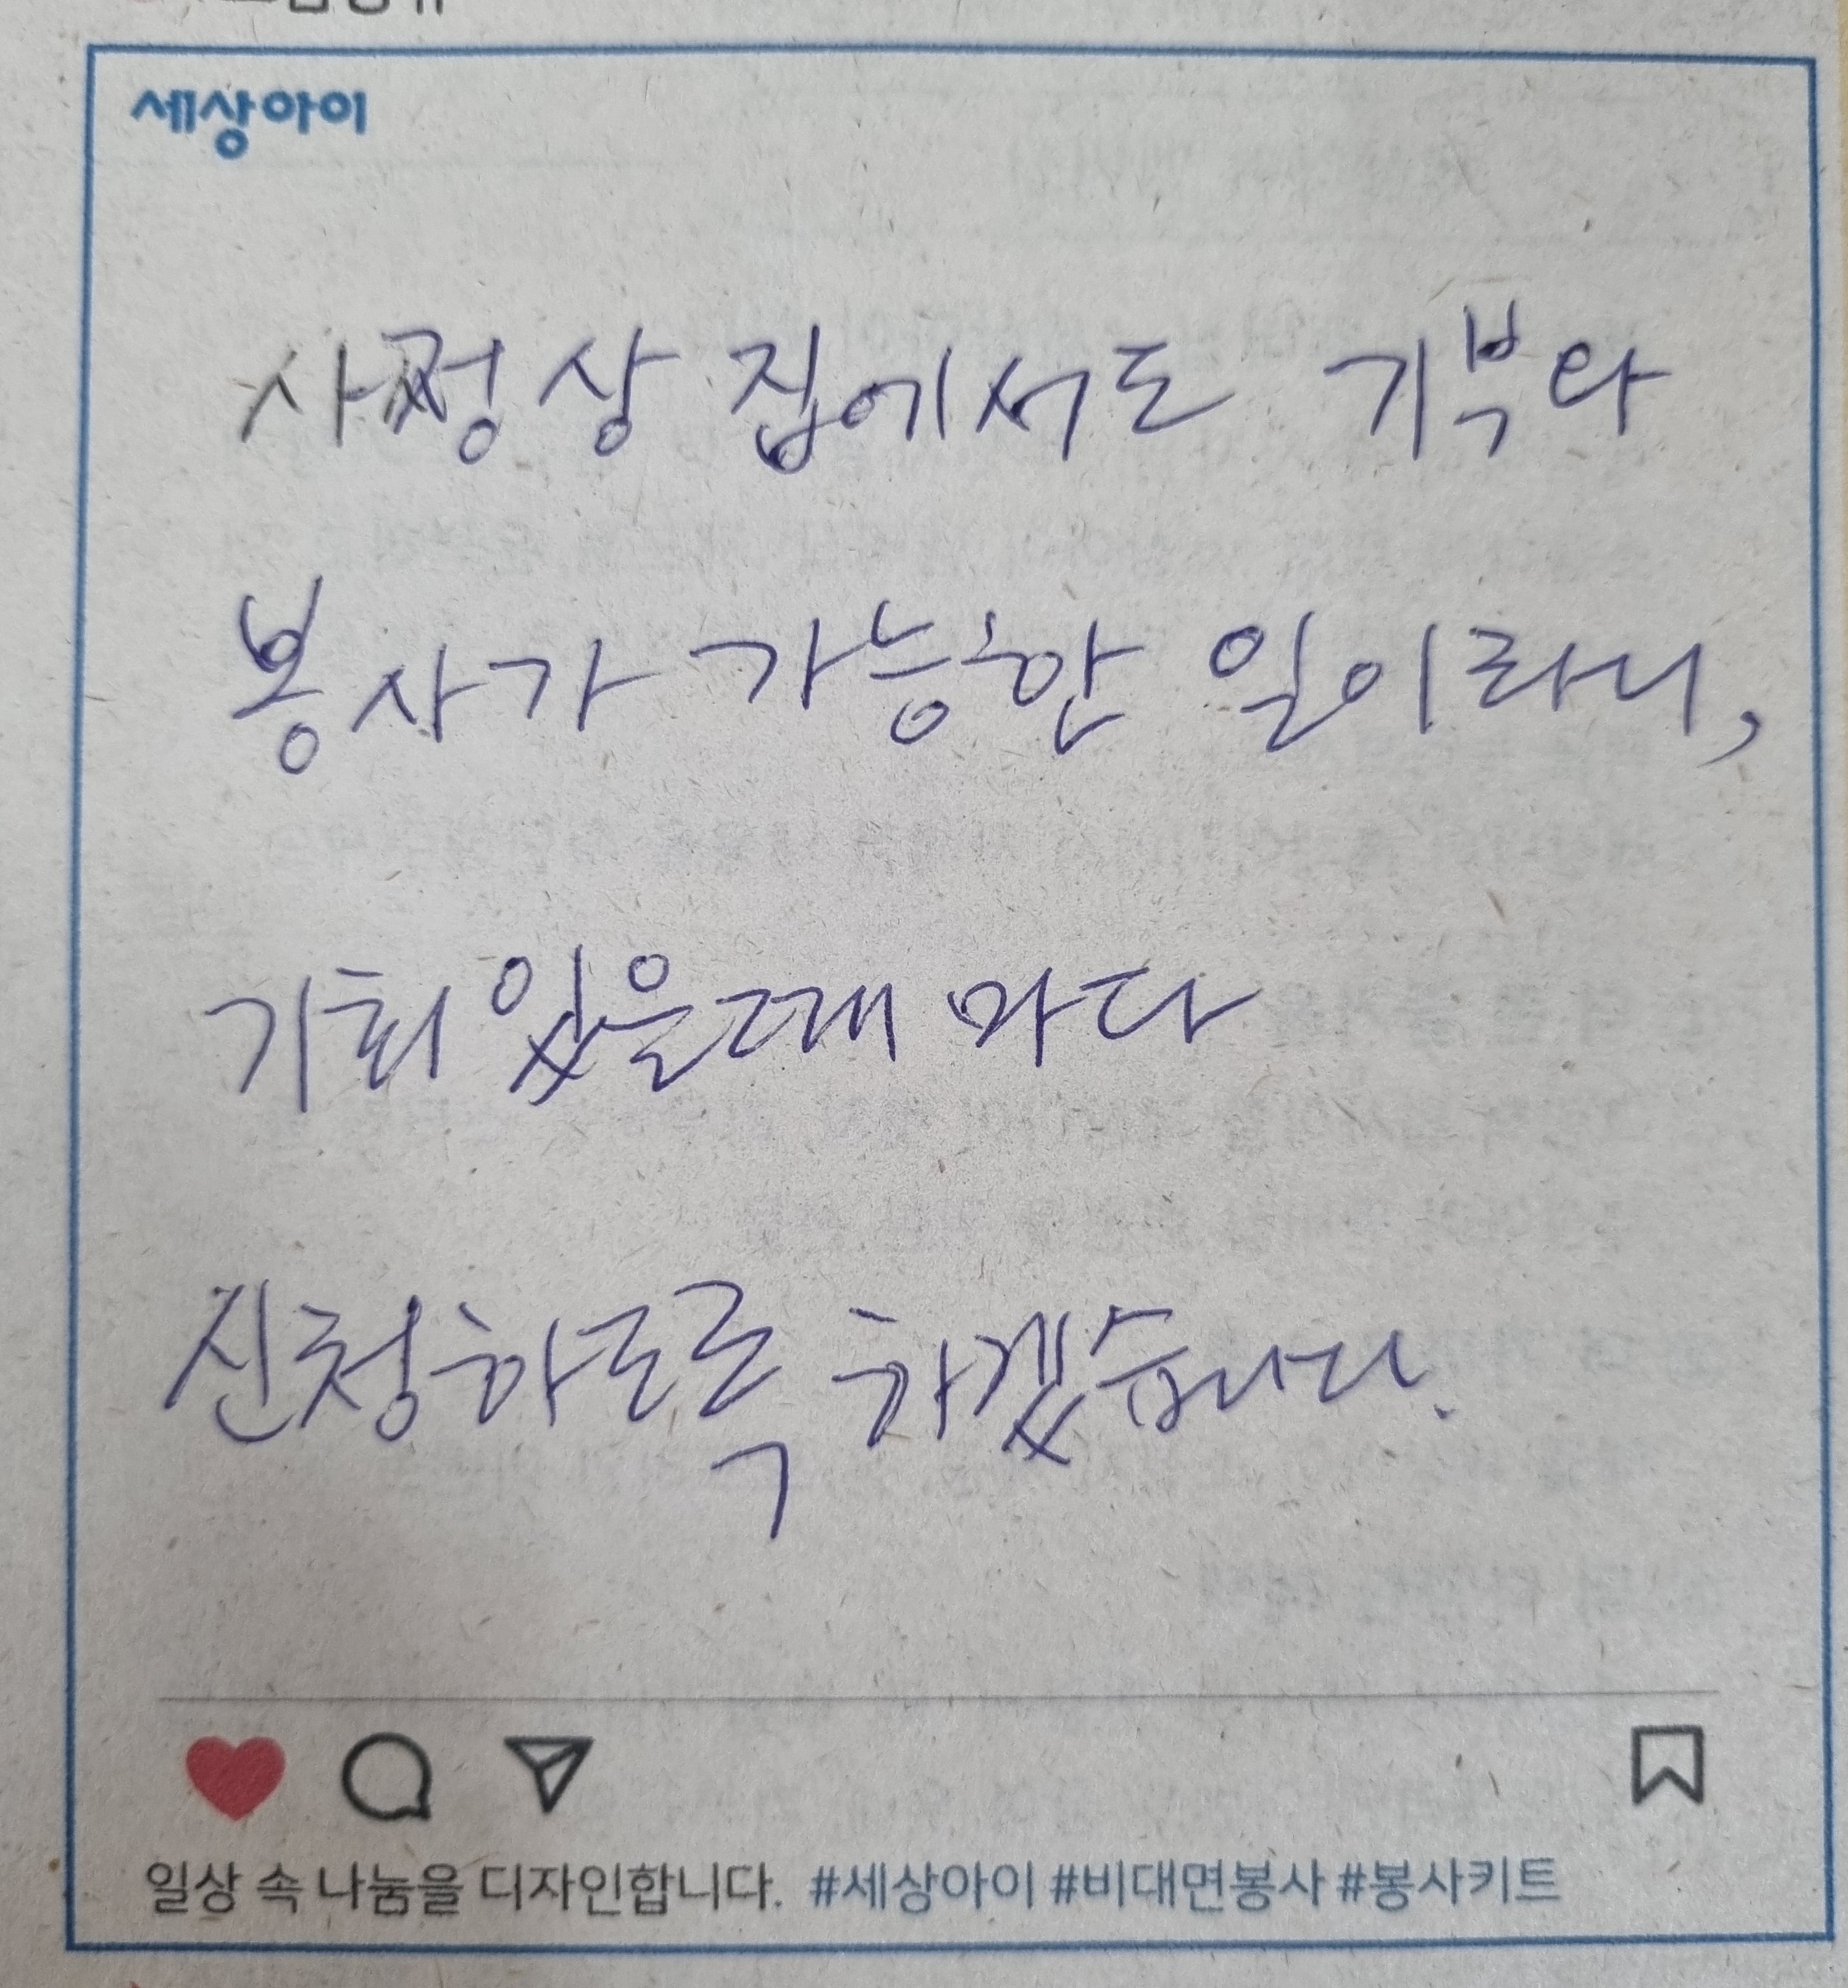 세상아이
사정상 집에서도 기부와
봉사가 가능한 일이라니,
기회 있을때 마다
신청하도록 하겠습니다.
일상 속 나눔을 디자인합니다. #세상아이 #비대면봉사 #봉사키트